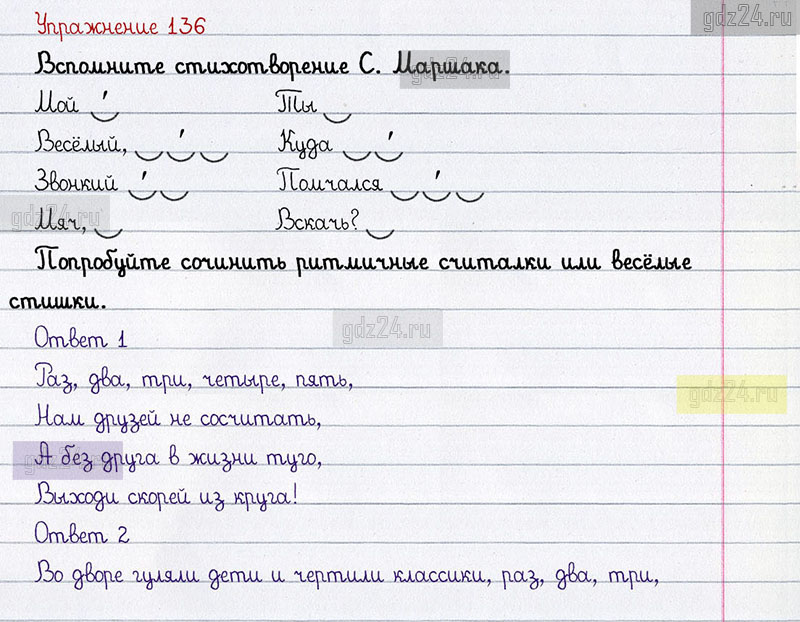 gdz24.ru
Упражнение 136
Вспомните стихотворение С. Маршака.
Мой Ты
Весёлый, Куда
Звонкий Помчался
gdz24.ru
Мяч, Вскачь?
Попробуйте сочинить ритмичные считалки или весёлые
стишки.
gdz24.ru
Ответ 1
Раз, два, три, четыре, пять,
gdz24.ru
Нам друзей не сосчитать,
А без друга в жизни туго,
Выходи скорей из круга!
Ответ 2
Во дворе гуляли дети и чертили классики, раз, два, три,